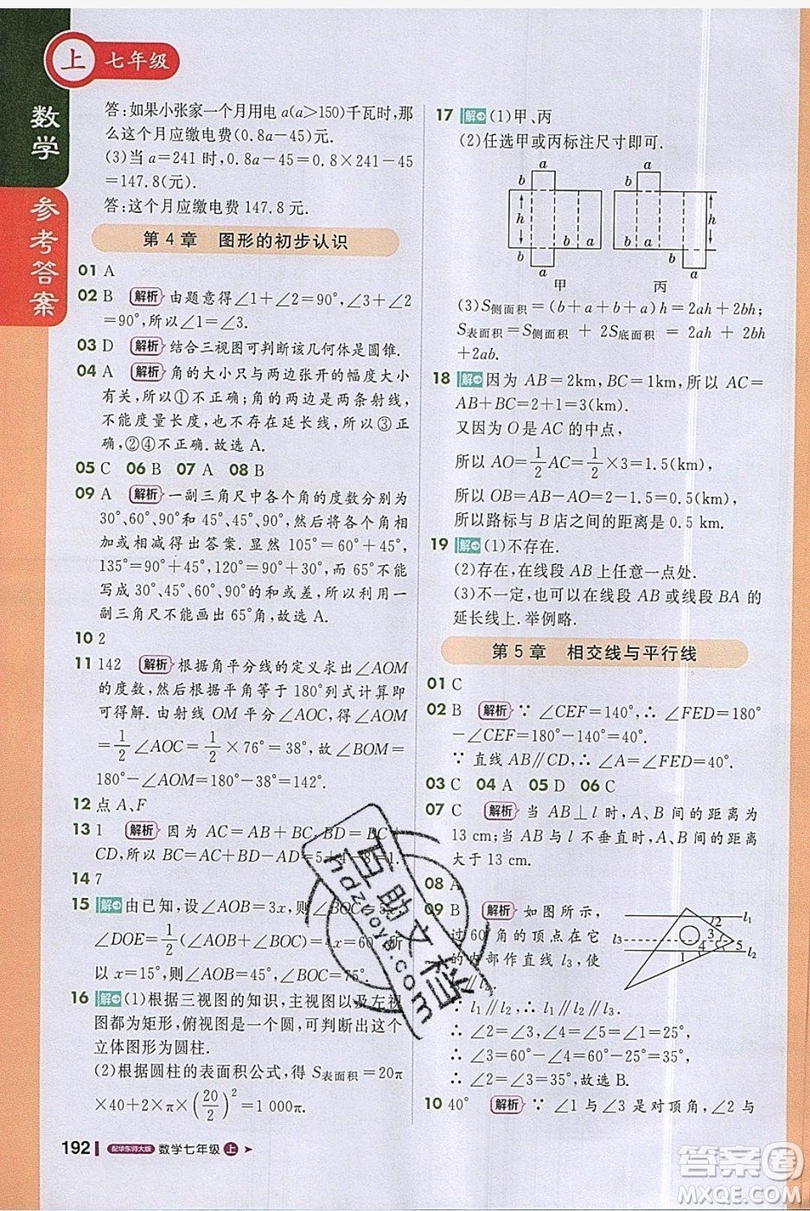 上 七年级
数学
参考答案
答:如果小张家一个月用电 a(a>150)千瓦时,那
么这个月应缴电费(0.8a-45)元.
(3)当 a=241 时,0.8a-45=0.8×241-45
=147.8(元).
答:这个月应缴电费 147.8 元.
第 4 章 图形的初步认识
01 A
02 B 解析 由题意得∠1+∠2=90°,∠3+∠2
=90°,所以∠1=∠3.
03 D 解析 结合三视图可判断该几何体是圆锥.
04 A 解析 角的大小只与两边张开的幅度大小
有关,所以①不正确;角的两边是两条射线,
不能度量长度,也不存在延长线,所以③正
确,②④不正确.故选 A.
05 C 06 B 07 A 08 B
09 A 解析 一副三角尺中各个角的度数分别为
30°、60°、90°、45°、45°、90°,将各个角相
加或相减得出答案. 显然 105°=60°+45°,
135°=90°+45°,75°=45°+30°. 而 65°不能
写成 30°、60°、45°、90°的和或差,所以用一
副三角尺不能画出的角为 65°,故选 A.
10 2
11 142 解析 根据角平分线的定义求出∠AOM
的度数,然后根据平角等于 180°列式计算即
可得解. 由射线 OM 平分∠AOC,得∠AOM
=1/2∠AOC=1/2×76°=38°,故∠BOM=
180°-∠AOM=180°-38°=142°.
12 点 A、F
13 1 解析 因为 AC=AB+BC,BD=BC+
CD,所以 AD=AB+BD-AC=5+4-8=1.
14 7
15 解 由已知,设∠AOB=3x,则∠BOC=2x,
∠DOE=1/2(∠AOB+∠BOC)=60°,所
以 x=15°,∠AOB=45°,∠BOC=30°.
16 解 (1)根据三视图的知识,主视图以及左视
图都为矩形,俯视图是一个圆,可判断出这个
立体图形为圆柱.
(2)根据圆柱的表面积公式,得 S表面积=20π
×40+2×π×10²=1000π.
192 配华东师大版 数学七年级 上
17 解 (1)甲、丙
(2)任选甲或丙标注尺寸即可.
a a
b b b b
h h h h
a a
甲 丙
(3)S侧面积=(b+a+b+a)h=2ah+2bh,
S表面积=S侧面积+2S底面积=2ah+2bh
+2ab.
18 解 因为 AB=2km,BC=1km,所以 AC=
AB+BC=2+1=3(km).
又因为 O 是 AC 的中点,
所以 AO=1/2AC=1/2×3=1.5(km).
所以 OB=AB-AO=2-1.5=0.5(km).
所以路标与 B 店之间的距离是 0.5 km.
19 解 (1)不存在.
(2)存在,在线段 AB 上任意一点处.
(3)不一定,也可以在线段 AB 或线段 BA 的
延长线上. 举例略.
第 5 章 相交线与平行线
01 C
02 B 解析 ∵∠CEF=140°,∴∠FED=180°
-∠CEF=180°-140°=40°.
∵直线 AB∥CD,∴∠A=∠FED=40°.
03 C 04 A 05 D 06 C
07 C 解析 当 AB⊥l 时,A、B 间的距离为
13 cm;当 AB 与 l 不垂直时,A、B 间的距离
大于 13 cm.
08 A
09 B 解析 如图所示,
过 60°角的顶点在它
的内部作直线 l₃,使
l₃∥l₁.
l₁
l₃
l₂
3
4
5
1
∵l₁∥l₂,∴l₁∥l₂∥l₃.
∴∠2=∠5,∠1=∠4=25°.
∴∠3=60°-∠4=60°-25°=35°.
∴∠2=∠5=∠3=35°,故选 B.
10 40° 解析 ∵∠1 与∠3 是对顶角,∠2 与
互助文档
hdzuoye.com
答案圈
MXQE.COM